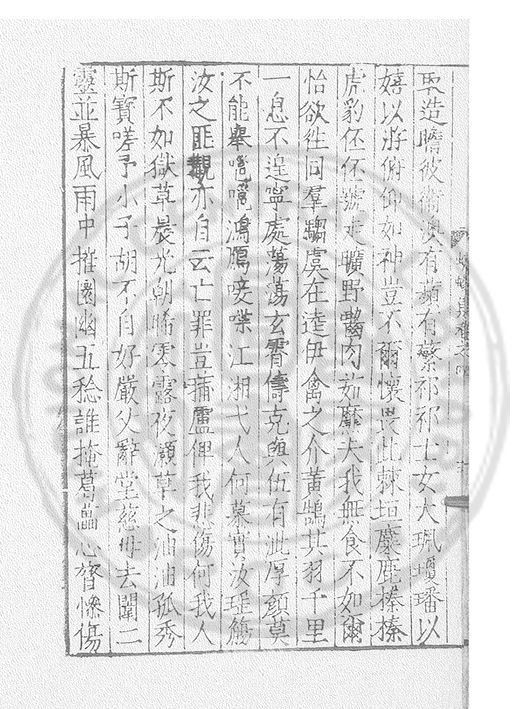 栗造瞻彼衛澳有蘋有蘩祁祁士女大珮瓊璠以
嬉以游俯仰如神豈不爾懷畏此棘垣麋鹿搸搸
虎豹伾伾號走曠野臠肉茹麋夫我無食不如爾
怡欲往同羣騶虞在逵毋禽之介黃鵠其羽千里
一息不遑寧處蕩蕩玄霄儔克與伍有泚厚顏莫
不能舉嗈嗈鴻鴈唼喋江湘弋人何慕實汝瑾觴
汝之匪觀亦自云亡罪豈蒲盧俾我悲傷何我人
斯不如獄草晨光朝晞零露夜灝草之油油孤秀
斯寶嗟予小子胡不自好嚴父辭堂慈母去闈二
靈並暴風雨中摧圜幽五稔誰掩葛藟心膂慘傷